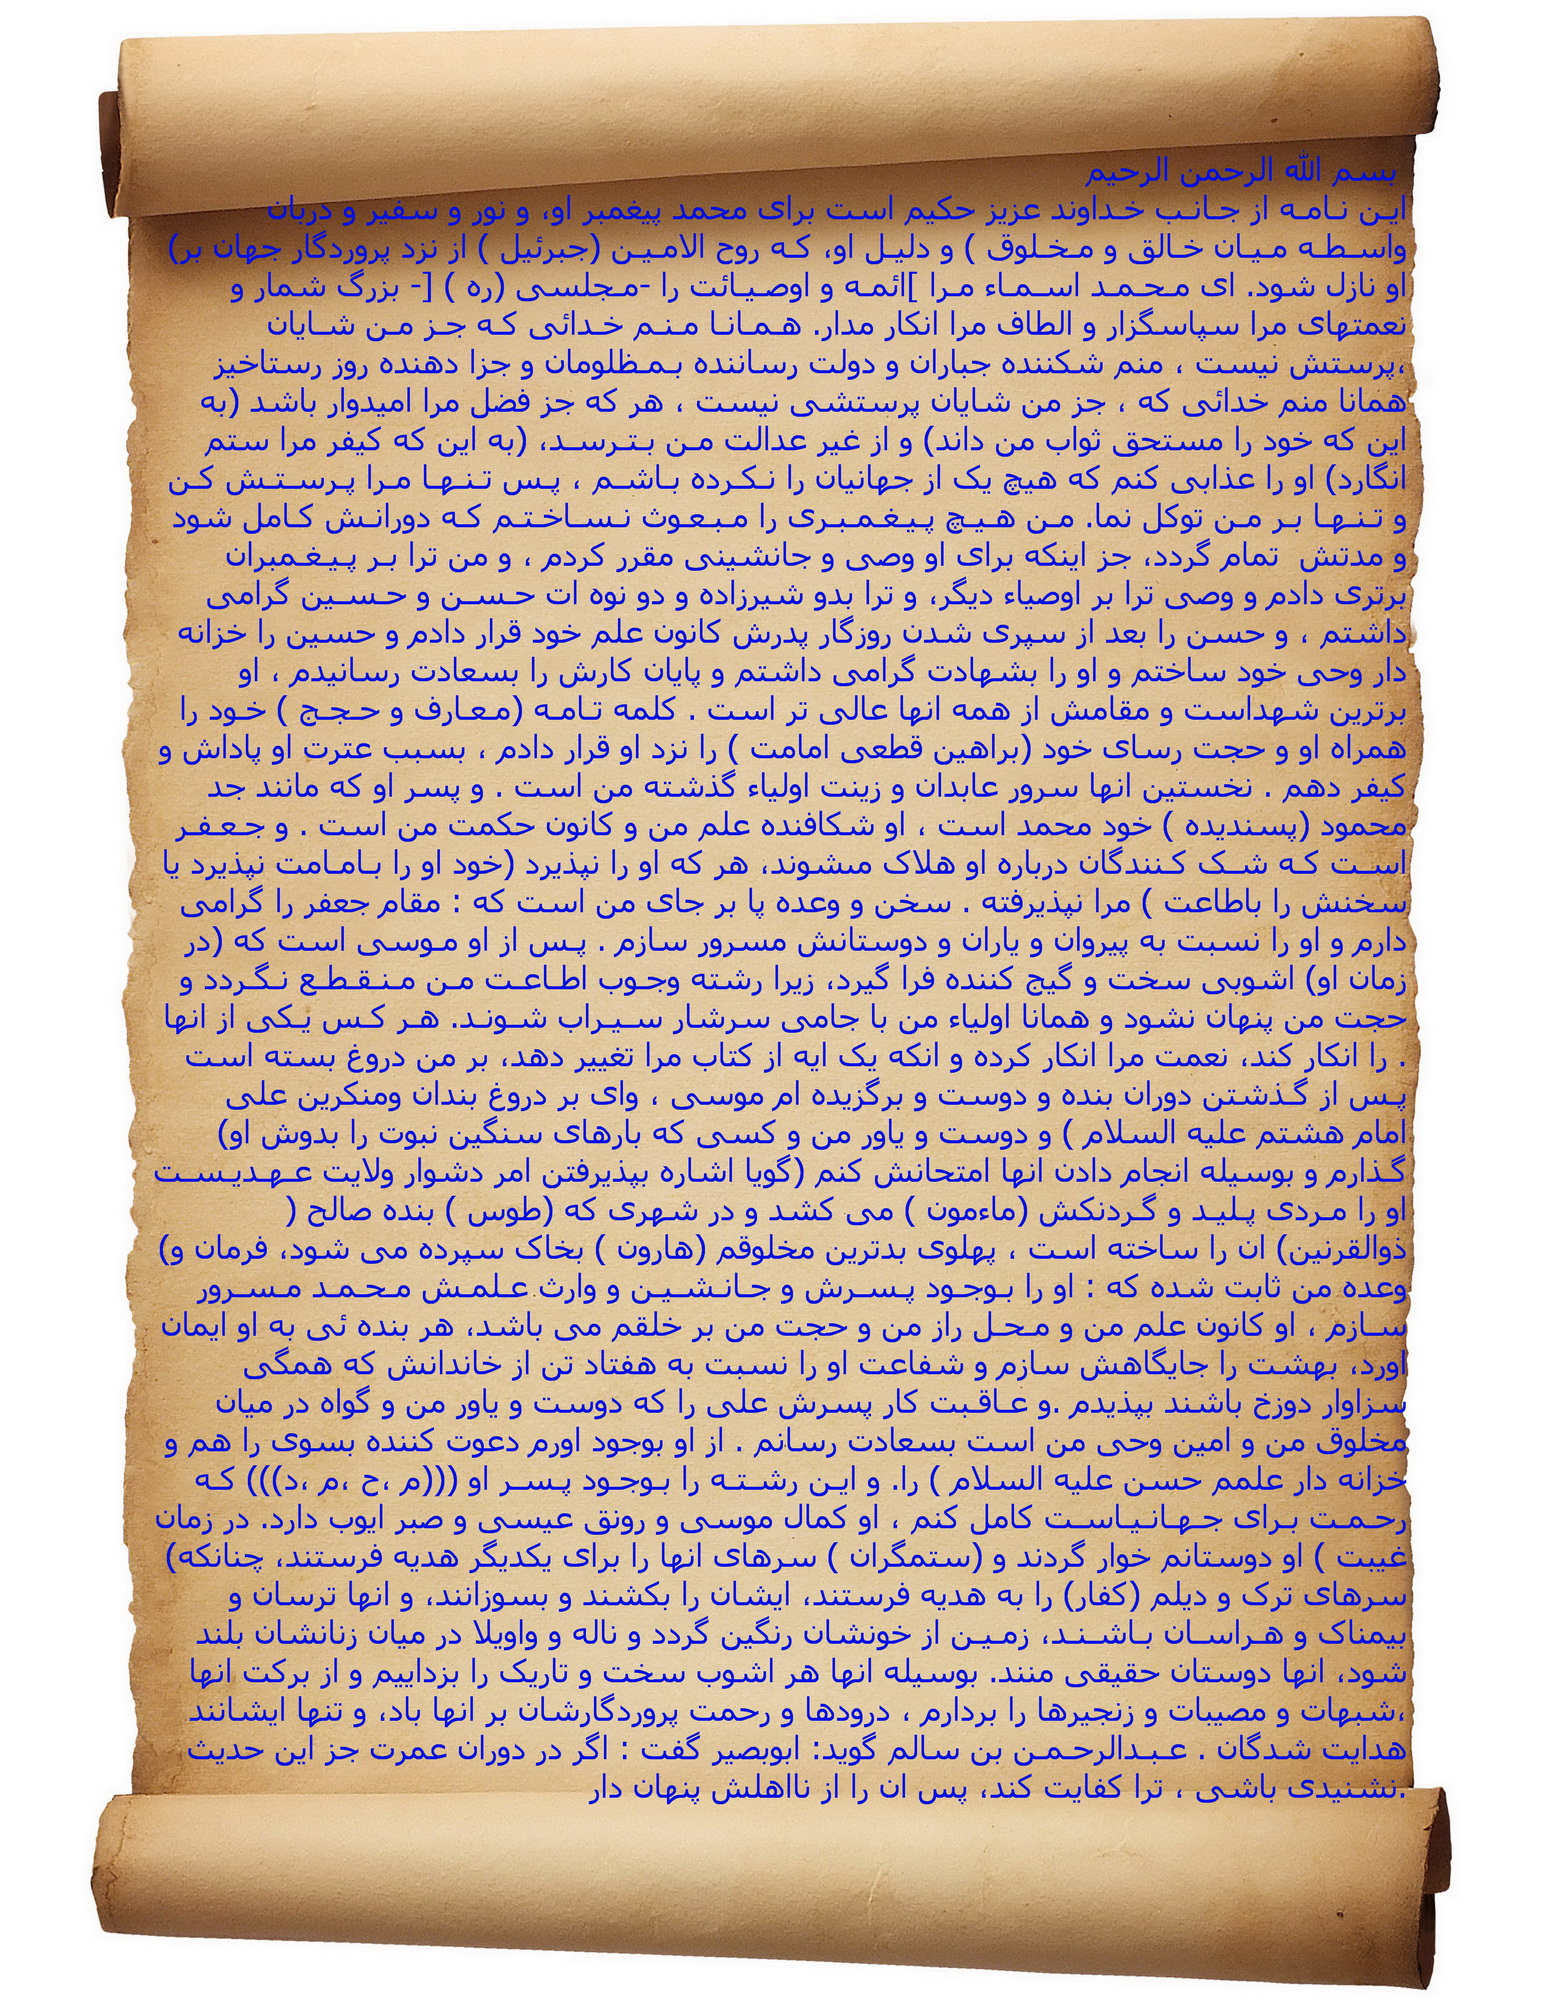 بسم الله الرحمن الرحیم
این نامه از جانب خداوند عزیز حکیم است برای محمد پیغمبر او، و نور و سفیر و دربان
واسطه میان خالق و مخلوق ) و دلیل او، که روح الامین (جبرئیل ) از نزد پروردگار جهان بر)
او نازل شود. ای محمد اسماء مرا ]ائمه و اوصیائت را -مجلسی (ره ) [- بزرگ شمار و
نعمتهای مرا سپاسگزار و الطاف مرا انکار مدار. همانا منم خدائی که جز من شایان
،پرستش نیست ، منم شکننده جباران و دولت رساننده بمظلومان و جزا دهنده روز رستاخیز
همانا منم خدائی که ، جز من شایان پرستشی نیست ، هر که جز فضل مرا امیدوار باشد (به
این که خود را مستحق ثواب من داند) و از غیر عدالت من بترسد، (به این که کیفر مرا ستم
انگارد) او را عذابی کنم که هیچ یک از جهانیان را نکرده باشم ، پس تنها مرا پرستش کن
و تنها بر من توکل نما. من هیچ پیغمبری را مبعوث نساختم که دورانش کامل شود
و مدتش تمام گردد، جز اینکه برای او وصی و جانشینی مقرر کردم ، و من ترا بر پیغمبران
برتری دادم و وصی ترا بر اوصیاء دیگر، و ترا بدو شیرزاده و دو نوه ات حسن و حسین گرامی
داشتم ، و حسن را بعد از سپری شدن روزگار پدرش کانون علم خود قرار دادم و حسین را خزانه
دار وحی خود ساختم و او را بشهادت گرامی داشتم و پایان کارش را بسعادت رسانیدم ، او
برترین شهداست و مقامش از همه انها عالی تر است . کلمه تامه (معارف و حجج ) خود را
همراه او و حجت رسای خود (براهین قطعی امامت ) را نزد او قرار دادم ، بسبب عترت او پاداش و
کیفر دهم . نخستین انها سرور عابدان و زینت اولیاء گذشته من است . و پسر او که مانند جد
محمود (پسندیده ) خود محمد است ، او شکافنده علم من و کانون حکمت من است . و جعفر
است که شک کنندگان درباره او هلاک مىشوند، هر که او را نپذیرد (خود او را بامامت نپذیرد یا
سخنش را باطاعت ) مرا نپذیرفته . سخن و وعده پا بر جای من است که : مقام جعفر را گرامی
دارم و او را نسبت به پیروان و یاران و دوستانش مسرور سازم . پس از او موسی است که (در
زمان او) اشوبی سخت و گیج کننده فرا گیرد، زیرا رشته وجوب اطاعت من منقطع نگردد و
حجت من پنهان نشود و همانا اولیاء من با جامی سرشار سیراب شوند. هر کس یکی از انها
. را انکار کند، نعمت مرا انکار کرده و انکه یک ایه از کتاب مرا تغییر دهد، بر من دروغ بسته است
پس از گذشتن دوران بنده و دوست و برگزیده ام موسی ، وای بر دروغ بندان ومنکرین علی
امام هشتم علیه السلام ) و دوست و یاور من و کسی که بارهای سنگین نبوت را بدوش او)
گذارم و بوسیله انجام دادن انها امتحانش کنم (گویا اشاره بپذیرفتن امر دشوار ولایت عهدیست
او را مردی پلید و گردنکش (ماءمون ) می کشد و در شهری که (طوس ) بنده صالح (
ذوالقرنین) ان را ساخته است ، پهلوی بدترین مخلوقم (هارون ) بخاک سپرده می شود، فرمان و)
وعده من ثابت شده که : او را بوجود پسرش و جانشین و وارث علمش محمد مسرور
سازم ، او کانون علم من و محل راز من و حجت من بر خلقم می باشد، هر بنده ئی به او ایمان
اورد، بهشت را جایگاهش سازم و شفاعت او را نسبت به هفتاد تن از خاندانش که همگی
سزاوار دوزخ باشند بپذیدم .و عاقبت کار پسرش علی را که دوست و یاور من و گواه در میان
مخلوق من و امین وحی من است بسعادت رسانم . از او بوجود اورم دعوت کننده بسوی را هم و
خزانه دار علمم حسن علیه السلام ) را. و این رشته را بوجود پسر او (((م ،ح ،م ،د))) که
رحمت برای جهانیاست کامل کنم ، او کمال موسی و رونق عیسی و صبر ایوب دارد. در زمان
غیبت ) او دوستانم خوار گردند و (ستمگران ) سرهای انها را برای یکدیگر هدیه فرستند، چنانکه)
سرهای ترک و دیلم (کفار) را به هدیه فرستند، ایشان را بکشند و بسوزانند، و انها ترسان و
بیمناک و هراسان باشند، زمین از خونشان رنگین گردد و ناله و واویلا در میان زنانشان بلند
شود، انها دوستان حقیقی منند. بوسیله انها هر اشوب سخت و تاریک را بزداییم و از برکت انها
،شبهات و مصیبات و زنجیرها را بردارم ، درودها و رحمت پروردگارشان بر انها باد، و تنها ایشانند
هدایت شدگان . عبدالرحمن بن سالم گوید: ابوبصیر گفت : اگر در دوران عمرت جز این حدیث
.نشنیدی باشی ، ترا کفایت کند، پس ان را از نااهلش پنهان دار